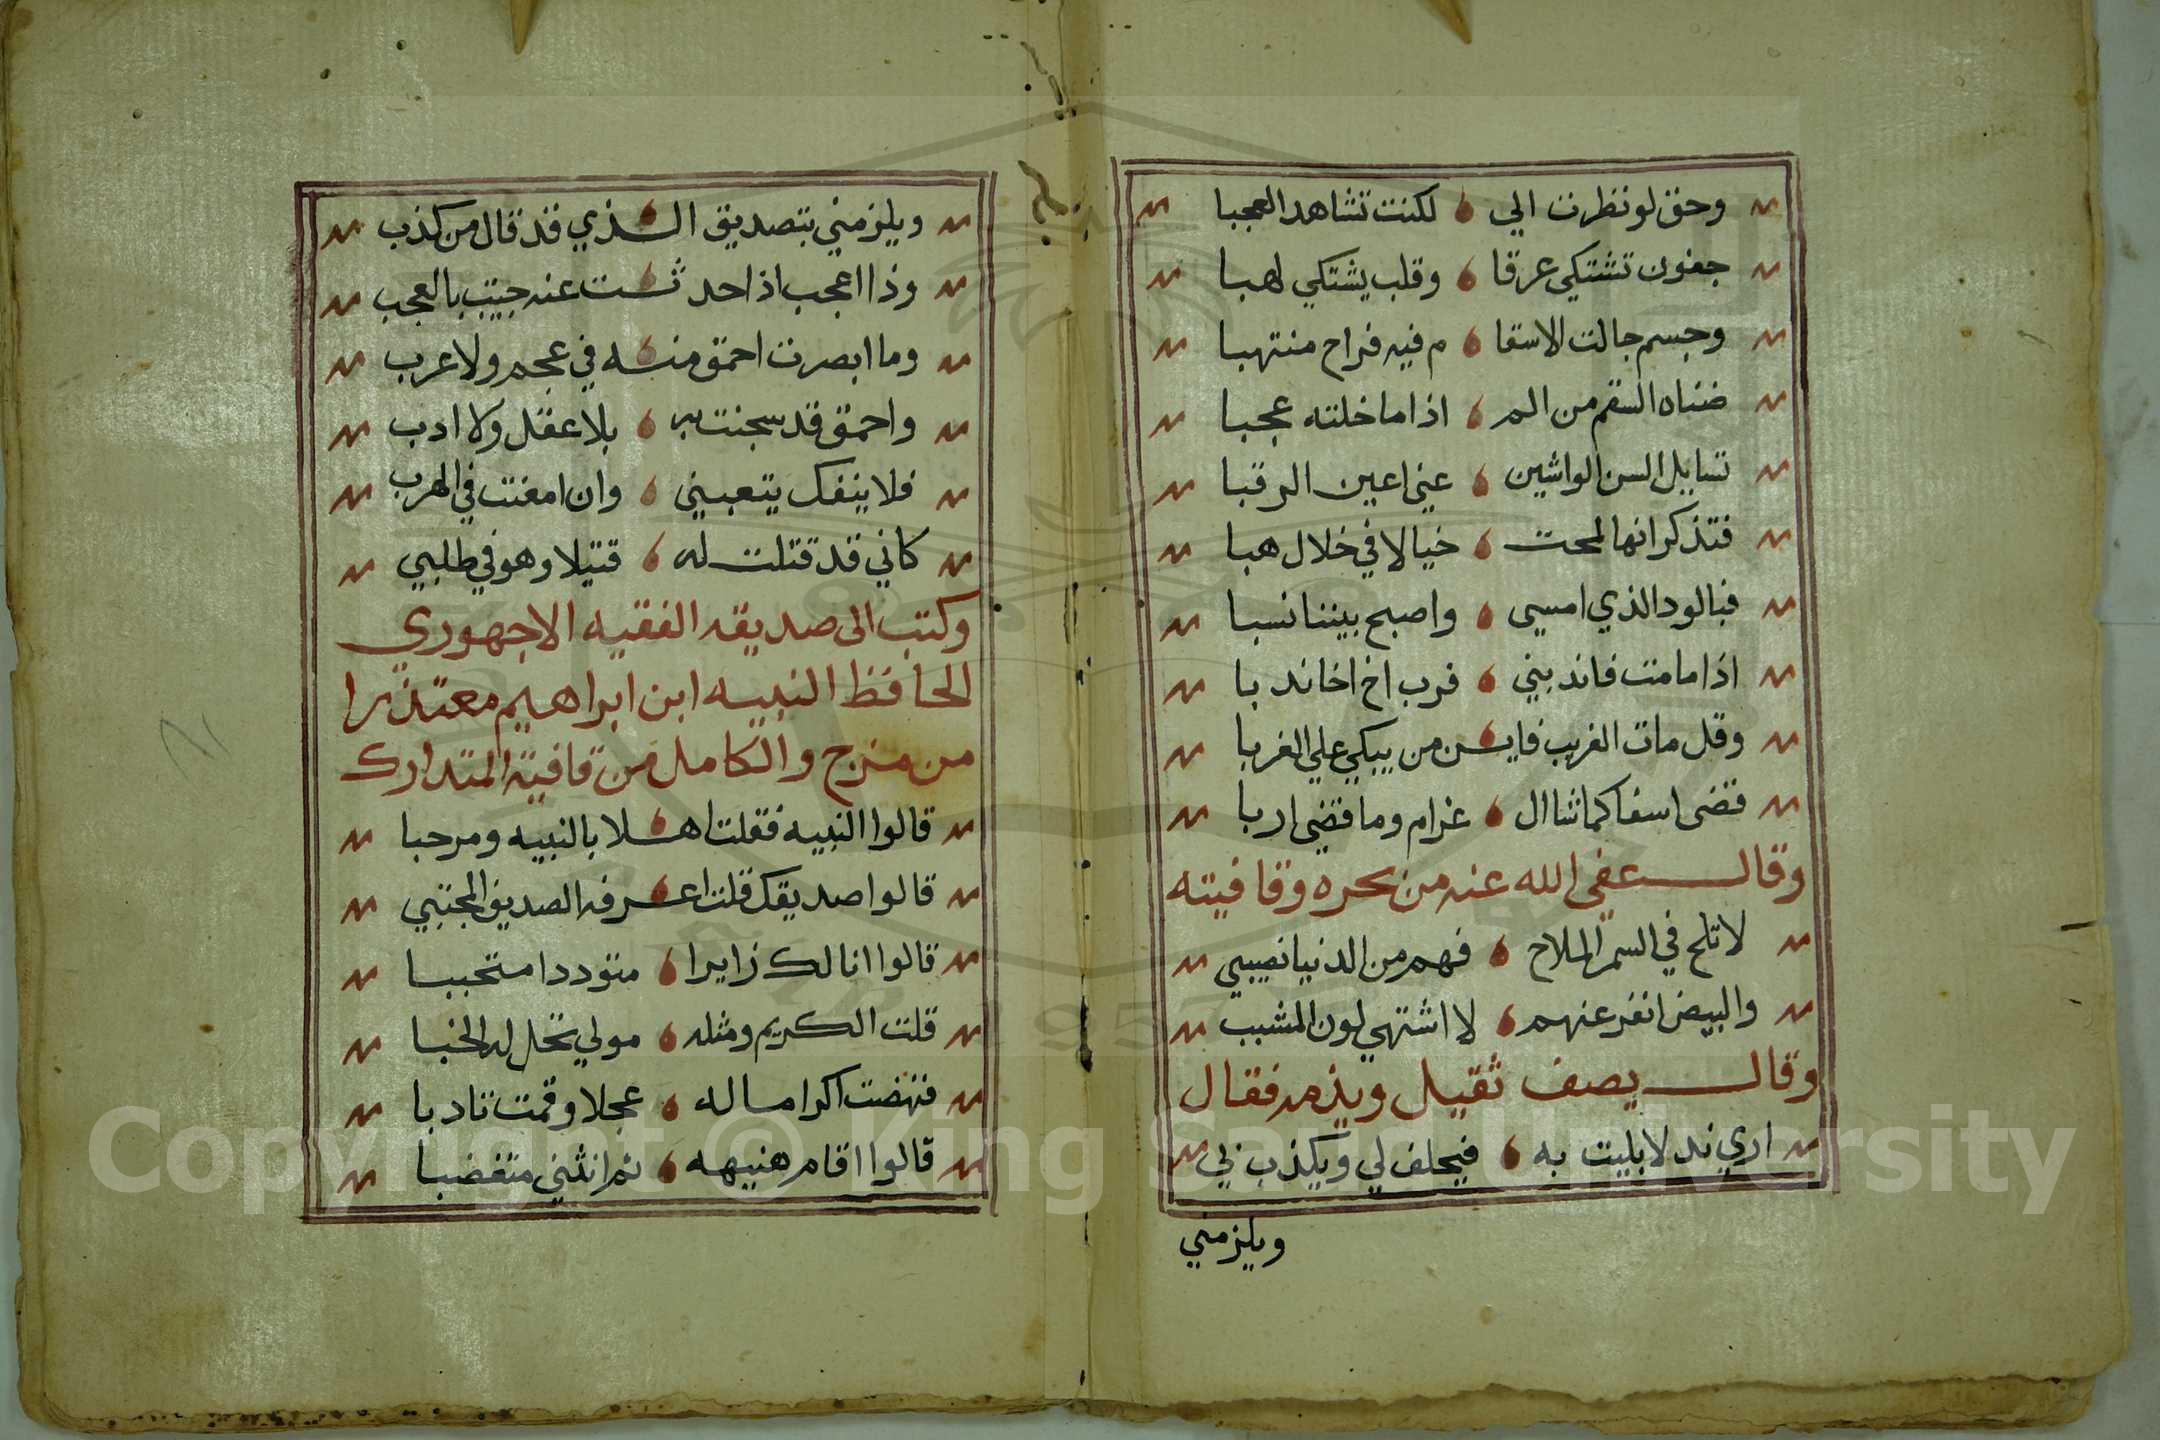 وحق لو نظرت الي لكنت تشاهد العجبا
جفون تشتكي غرقا وقلب يشتكي لهبا
وجسم جالت الاسقا م فيه فراح منتهبا
ضناه السقم من الم اذا ما خلته عجبا
تسايل السن الواشين عني اعين الرقبا
فتذكر انها لمحت خيالا في خلال هبا
فبالود الذي امسي واصبح بيننا نسبا
اذا ما مت فاندبني فرب اخ اخا ندبا
وقل مات الغريب فايــن من يبكي علي الغربا
قضي اسفا كما شاال غرام وما قضي اربا
وقال عفي الله عنه من بحره وقافيته
لا تلح في السمر الملاح فهم من الدنيا نصيبي
والبيض انفر عنهم لا اشتهي لون المشيب
وقال يصف ثقيل ويذمه فقال
اري ند لا بليت به فيحلف لي ويكذب لي
ويلزمني
ويلزمني بتصديق الــذي قد قال من كذب
وذا اعجب اذا حد ثــت عنه جيت بالعجب
وما ابصرت احمق منــه في عجم ولا عرب
واحمق قد سجنت به بلا عقل ولا ادب
فلا ينفك يتعبني وان امعنت في الهرب
كاني قد قتلت له قتيلا وهو في طلبي
وكتب الى صديقه الفقيه الاجهوري
الحافظ النبيه ابن ابراهيم معتذرا
من منرج والكامل من قافية المتدارك
قالوا النبيه فقلت اهــلا بالنبيه ومرحبا
قالوا صديقك قلت اعــرفه الصديق المجتبي
قالوا انا لك زايرا متوددا متحببا
قلت الكريم ومثله مولي تحل له الحبا
فنهضت اكراما له عجلا وقمت تادبا
قالوا اقام هنيهه ثم انثني متغضبا
Copyright © King Saud University